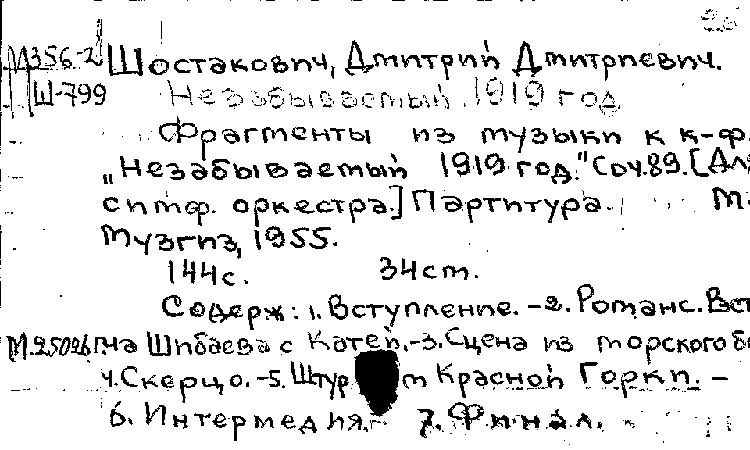 М356-2 Шостакович, Дмитрий Дмитриевич.
Ш-799 Незабываемый 1919 год
Фрагменты из музыки к к-ф.
„Незабываемый 1919 год." Соч.89. [Для
симф. оркестра.] Партитура. М.
Музгиз, 1955.
144с. 34см.
Содерж: 1. Вступление. -2. Романс. Вст
ча Шибаева с Катей. -3. Сцена из морского б
4. Скерцо. -5. Штур м Красной Горки. -
6. Интермедия. 7. Финал.